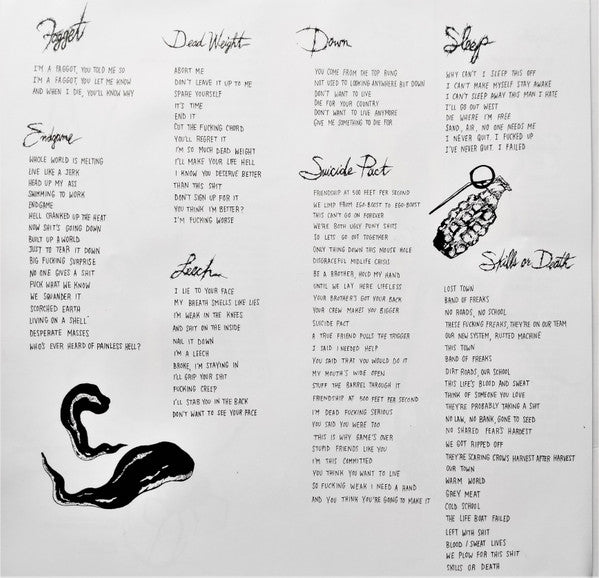 Faggot
I'M A FAGGOT, YOU TOLD ME SO
I'M A FAGGOT, YOU LET ME KNOW
AND WHEN I DIE, YOU'LL KNOW WHY
Endgame
WHOLE WORLD IS MELTING
LIVE LIKE A JERK
HEAD UP MY ASS
SWIMMING TO WORK
ENDGAME
HELL CRANKED UP THE HEAT
NOW SHIT'S GOING DOWN
BUILT UP A WORLD
JUST TO TEAR IT DOWN
BIG FUCKING SURPRISE
NO ONE GIVES A SHIT
FUCK WHAT WE KNOW
WE SQUANDER IT
SCORCHED EARTH
LIVING ON A SHELL
DESPERATE MASSES
WHO'S EVER HEARD OF PAINLESS HELL?
Dead Weight
ABORT ME
DON'T LEAVE IT UP TO ME
SPARE YOURSELF
IT'S TIME
END IT
CUT THE FUCKING CHORD
YOU'LL REGRET IT
I'M SO MUCH DEAD WEIGHT
I'LL MAKE YOUR LIFE HELL
I KNOW YOU DESERVE BETTER
THAN THIS SHIT
DON'T SIGN UP FOR IT
YOU THINK I'M BETTER?
I'M FUCKING WORSE
Leech
I LIE TO YOUR FACE
MY BREATH SMELLS LIKE LIES
I'M WEAK IN THE KNEES
AND SHIT ON THE INSIDE
NAIL IT DOWN
I'M A LEECH
BROKE, I'M STAYING IN
I'LL GRIP YOUR SHIT
FUCKING CREEP
I'LL STAB YOU IN THE BACK
DON'T WANT TO SEE YOUR FACE
Down
YOU COME FROM THE TOP RUNG
NOT USED TO LOOKING ANYWHERE BUT DOWN
DON'T WANT TO LIVE
DIE FOR YOUR COUNTRY
DON'T WANT TO LIVE ANYMORE
GIVE ME SOMETHING TO DIE FOR
Suicide Pact
FRIENDSHIP AT 500 FEET PER SECOND
WE LIMP FROM EGO-BOOST TO EGO-BOOST
THIS CAN'T GO ON FOREVER
WE'RE BOTH UGLY PUNY SHITS
SO LETS GO OUT TOGETHER
ONLY THING DOWN THIS MOUSE HOLE
DISGRACEFUL MIDLIFE CRISIS
BE A BROTHER, HOLD MY HAND
UNTIL WE LAY HERE LIFELESS
YOUR BROTHER'S GOT YOUR BACK
YOUR CREW MAKES YOU BIGGER
SUICIDE PACT
A TRUE FRIEND PULLS THE TRIGGER
I SAID I NEEDED HELP
YOU SAID THAT YOU WOULD DO IT
MY MOUTH'S WIDE OPEN
STUFF THE BARREL THROUGH IT
FRIENDSHIP AT 500 FEET PER SECOND
I'M DEAD FUCKING SERIOUS
YOU SAID YOU WERE TOO
THIS IS WHY GAME'S OVER
STUPID FRIENDS LIKE YOU
I'M THIS COMMITTED
YOU THINK YOU WANT TO LIVE
SO FUCKING WEAK I NEED A HAND
AND YOU THINK YOU'RE GOING TO MAKE IT
Sleep
WHY CAN'T I SLEEP THIS OFF
I CAN'T MAKE MYSELF STAY AWAKE
I CAN'T SLEEP AWAY THIS MAN I HATE
I'LL GO OUT WEST
DIE WHERE I'M FREE
SAND, AIR, NO ONE NEEDS ME
I NEVER QUIT. I FUCKED UP
I'VE NEVER QUIT. I FAILED
Skills or Death
LOST TOWN
BAND OF FREAKS
NO ROADS, NO SCHOOL
THESE FUCKING FREAKS, THEY'RE ON OUR TEAM
OUR NEW SYSTEM, RUSTED MACHINE
THIS TOWN
BAND OF FREAKS
DIRT ROADS, OUR SCHOOL
THIS LIFE'S BLOOD AND SWEAT
THINK OF SOMEONE YOU LOVE
THEY'RE PROBABLY TAKING A SHIT
NO LAW, NO BANK, GONE TO SEED
NO SHARED FEAR'S HARDEST
WE GOT RIPPED OFF
THEY'RE SCARING CROWS HARVEST AFTER HARVEST
OUR TOWN
WARM WORLD
GREY MEAT
COLD SCHOOL
THE LIFE BOAT FAILED
LEFT WITH SHIT
BLOOD / SWEAT LIVES
WE PLOW FOR THIS SHIT
SKILLS OR DEATH